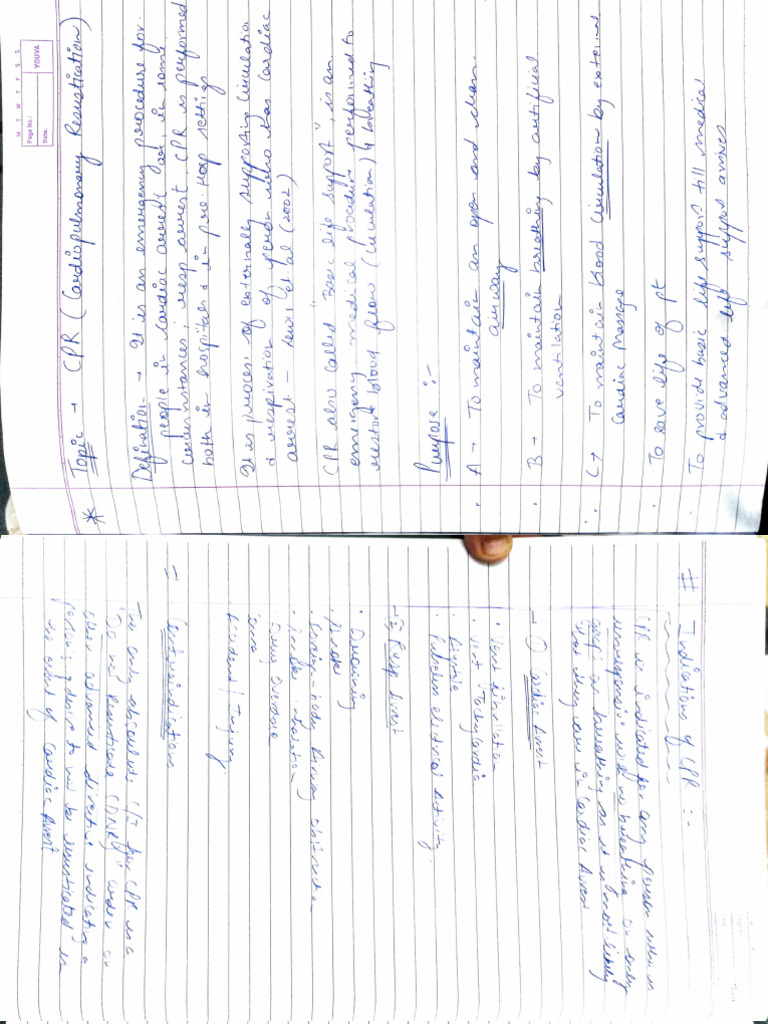 M T W T F S S
Page No.:
Date:
YOUVA
* Topic → CPR (Cardiopulmonary Resustiation)
Defination → It is an emergency procedure for
people in cardiac arrest or, in some
circumstances, resp arrest. CPR is performed
both in hospitals & in pre-hosp settings
It is process of externally supporting circulation
& respiration of person who has cardiac
arrest - Lewis et al (2002)
CPR also called "Basic life support", is an
emergency medical procedure performed to
restore blood flow (circulation) & breathing
Purpose :-
A → To maintain an open and clean
airway
B → To maintain breathing by artificial
ventilation
C → To maintain blood circulation by external
cardiac massage
To save life of pt
To provide basic life support till medical
& advanced life support arrives
# Indications of CPR :-
CPR is indicated for any person who is
with no breathing or only
gasping as breathing as it is almost likely
that they are in cardiac arrest
→ ① Cardiac Arrest
Vent fibrillation
Vent Tachycardia
Asystole
Pulseless electrical activity
→ ② Resp Arrest
Drowning
Stroke
Foreign body Airway obstruction
Smoke inhalation
Drug overdose
Injury
Contraindication
The only absolute C/I for CPR is a
"Do not Resuscitate (DNR)" order or
other advanced directive indicating a
person's desire to not be resuscitated in
the event of cardiac arrest